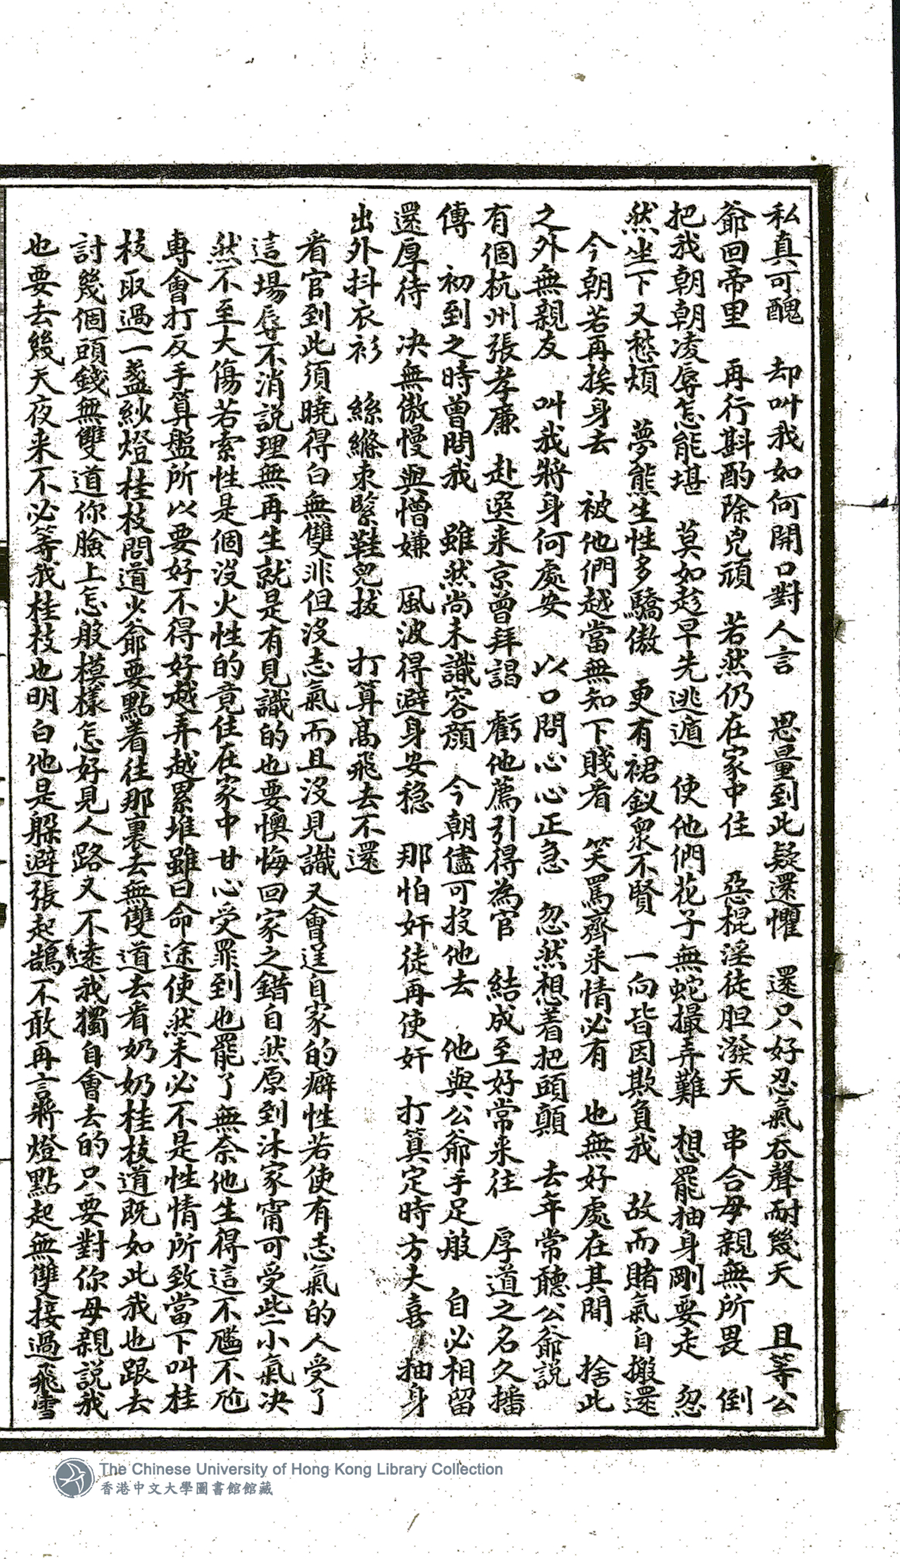 私真可醜　却叫我如何開口對人言　思量到此疑還懼　還只好忍氣吞聲耐幾天　且等公
爺回帝里　再行斟酌除兇頑　若然仍在家中住　惡棍淫徒胆潑天　串合母親無所畏　倒
把我朝朝凌辱怎能堪　莫如趁早先逃遁　使他們花子無蛇撮弄難　想罷抽身剛要走　忽
然坐下又愁煩　夢熊生性多驕傲　更有裙釵眾不賢　一向皆因欺負我　故而賭氣自搬還
今朝若再挨身去　被他們越當無知下賤看　笑罵齊来情必有　也無好處在其間　捨此
之外無親友　叫我將身何處安　以口問心心正急　忽然想着把頭顛　去年常聽公爺説
有個杭州張孝廉　赴選来京曾拜謁　虧他薦引得為官　結成至好常来往　厚道之名久播
傳　初到之時曾問我　雖然尚未識容顏　今朝儘可投他去　他與公爺手足般　自必相留
還厚待　决無傲慢與憎嫌　風波得避身安穏　那怕奸徒再使奸　打算定時方大喜　抽身
出外抖衣衫　絲縧束緊鞋兒拔　打算高飛去不還
看官到此須曉得白無雙非但没志氣而且没見識又會逞自家的癖性若使有志氣的人受了
這塲辱不消説理無再生就是有見識的也要懊悔回家之錯自然原到沐家甯可受些小氣决
然不至大傷若索性是個没火性的竟住在家中甘心受罪到也罷了無奈他生得這不尷不尬
專會打反手算盤所以要好不得好越弄越累堆雖曰命途使然未必不是性情所致當下叫桂
枝取過一盞紗燈桂枝問道少爺要點着往那裏去無雙道去看奶奶桂枝道既如此我也跟去
討幾個頭錢無雙道你臉上怎般模樣怎好見人路又不遠我獨自會去的只要對你母親説我
也要去幾天夜来不必等我桂枝也明白他是躲避張起鵠不敢再言將燈點起無雙接過飛雪
The Chinese University of Hong Kong Library Collection
香港中文大學圖書館館藏